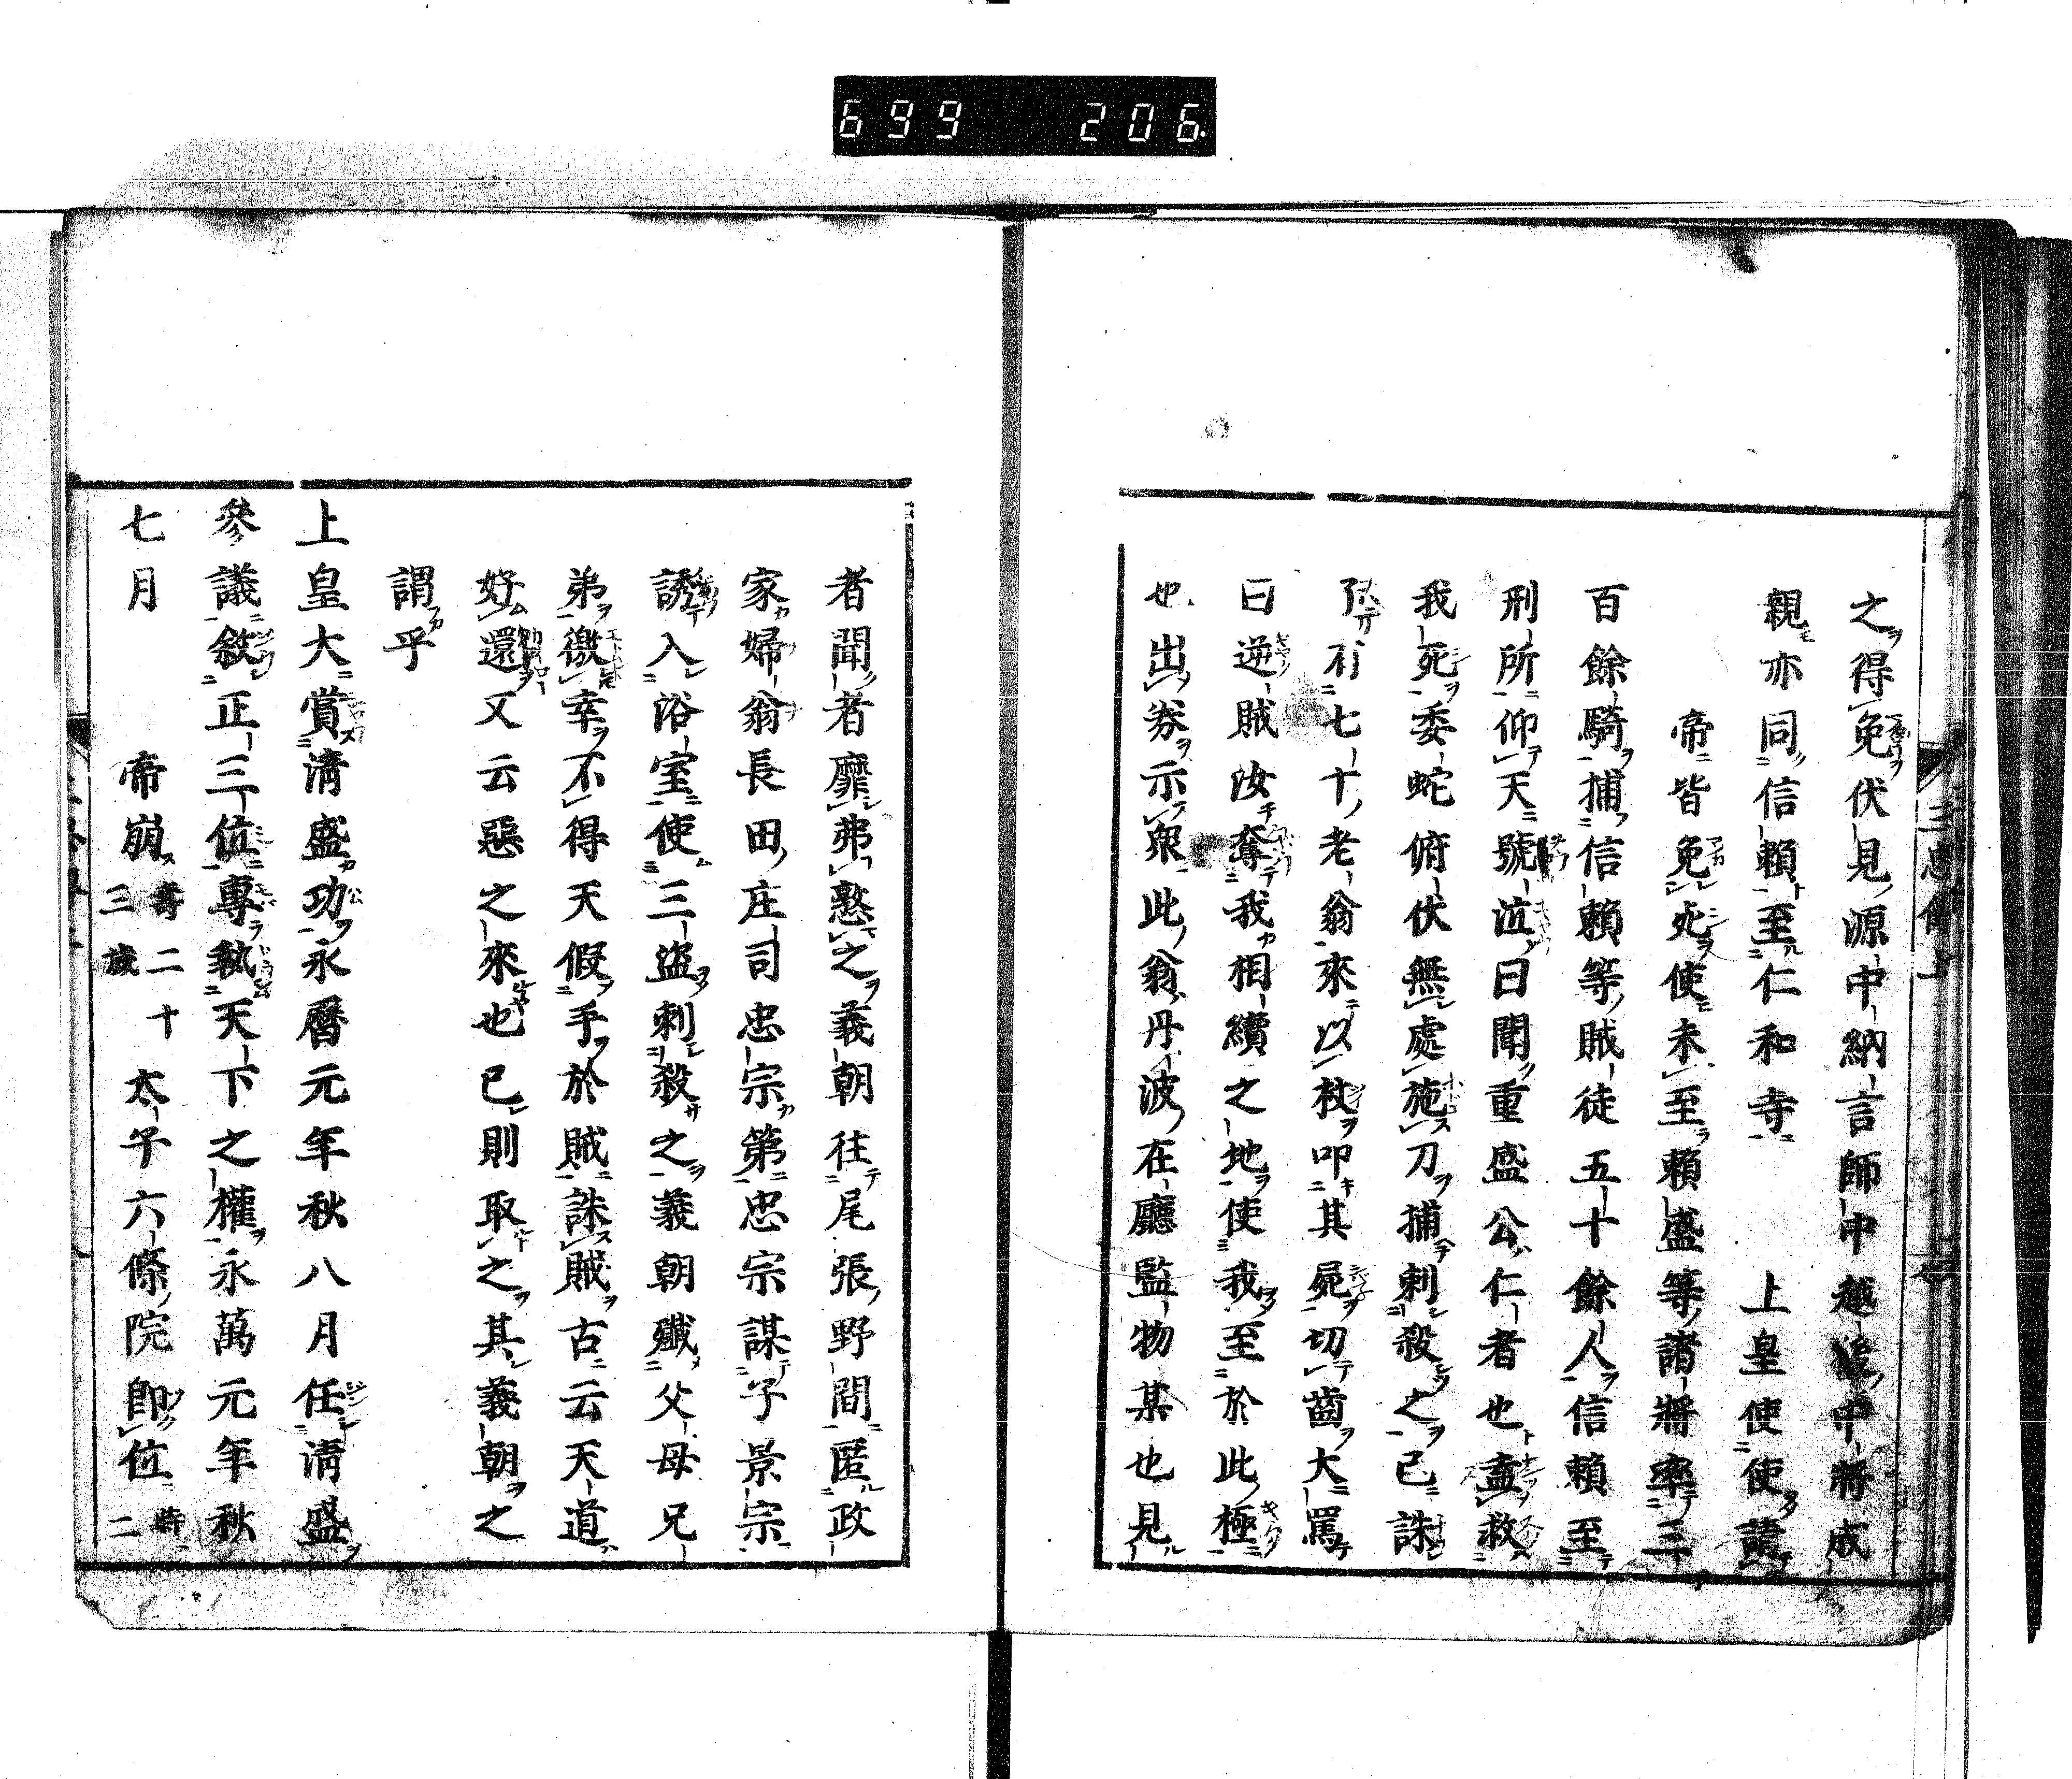 699 206
之得免伏見源中納言師中越後中將成
親亦同信賴至仁和寺 上皇使使請
帝皆免死使未至賴盛等諸將率三
百餘騎捕信賴等賊徒五十餘人信賴至
刑所仰天號泣曰聞重盛公仁者也盍救
我死委蛇俯伏無處施刀捕刺殺之已誅
有七十老翁來以杖叩其屍切齒大罵
曰逆賊汝奪我相續之地使我至於此極
也出券示衆此翁丹波在廳監物某也見
者聞者靡弗憝之義朝往尾張野間匿政
家婦翁長田庄司忠宗第忠宗謀子景宗
誘入浴室使三盜刺殺之義朝殲父母兄
弟徼幸不得天假手於賊誅賊古云天道
好還又云惡之來也已則取之其義朝之
謂乎
上皇大賞淸盛功永曆元年秋八月任淸盛
參議敘正三位專執天下之權永萬元年秋
七月 帝崩壽二十三歲太子六條院卽位時二